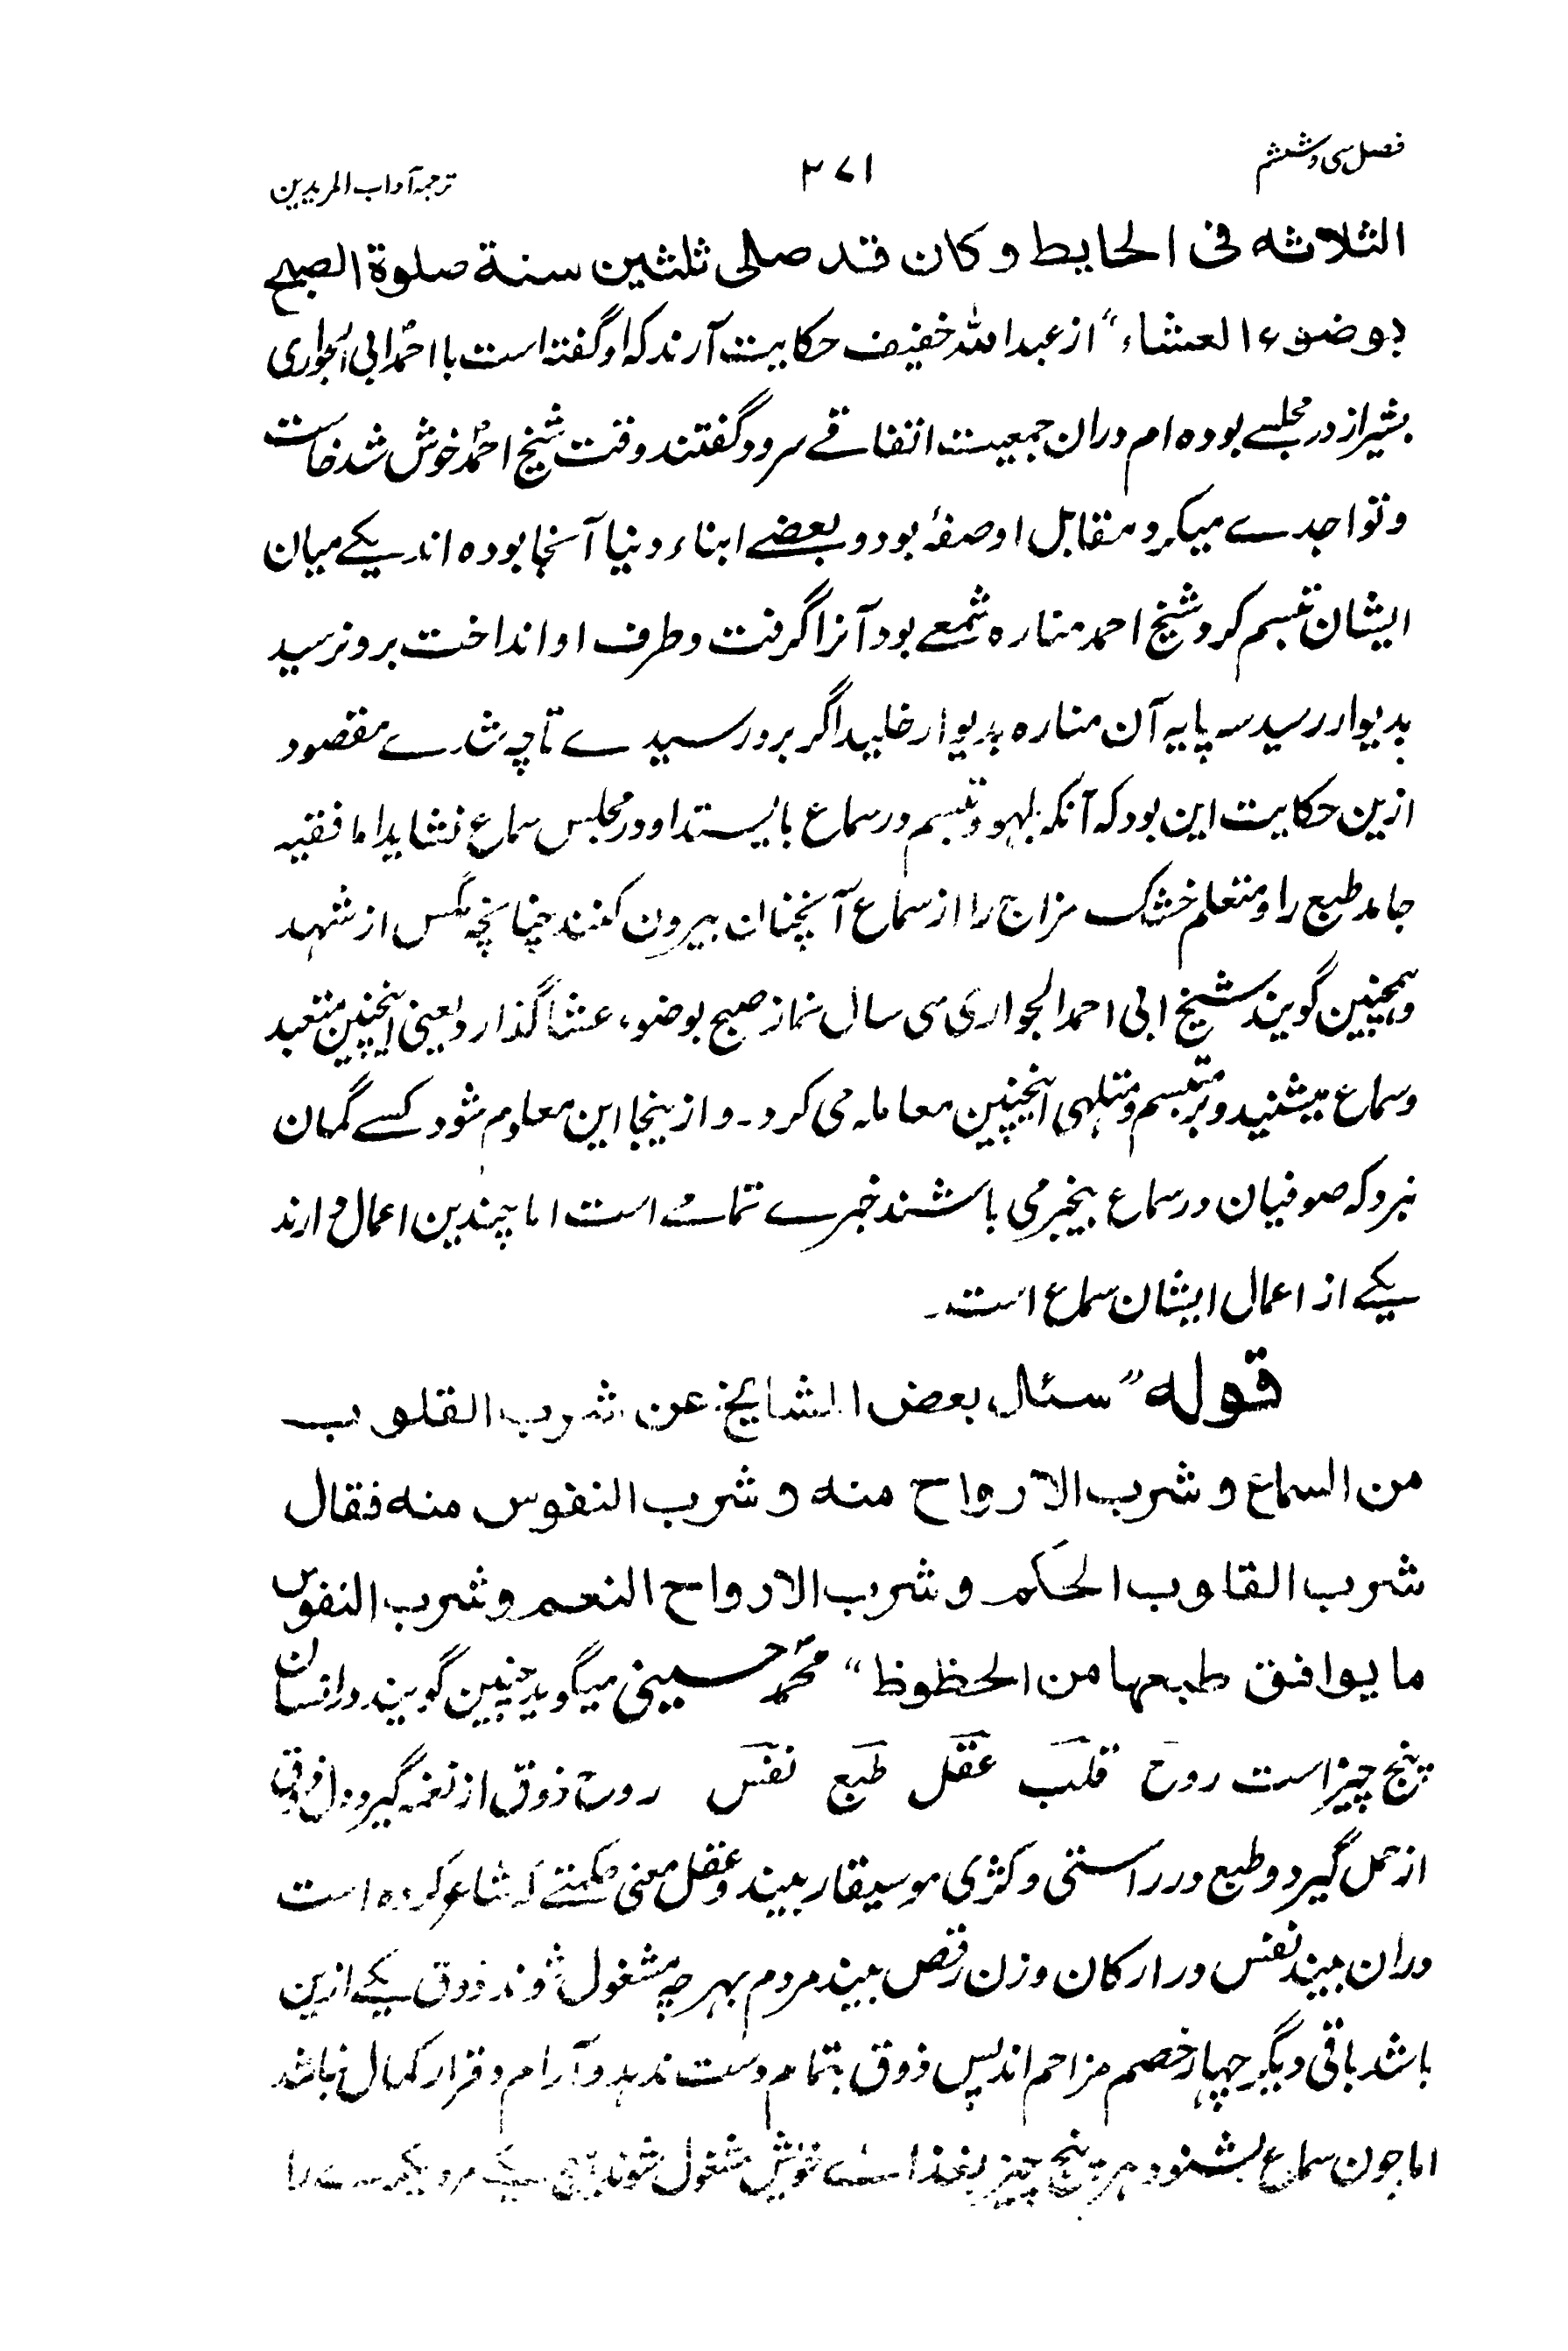 فصل سی و ششم
۲۷۱
ترجمہ آداب المریدین
الثلاثه فی الحایط و کان قد صلی ثلثین سنة صلوة الصبح
بوضوء العشاء“ از عبدالله خفیف حکایت آرند که او گفته است با احمد ابی الجواری
بشیراز در مجلسے بوده ام دران جمعیت اتفاقے سرود گفتند وقت شیخ احمد خوش شد خاست
و تواجدے میکرد مقابل او صفهٔ بود و بعضے ابناء دنیا آنجا بوده اند یکے میان
ایشان تبسم کرد شیخ احمد مناره شمعے بود آنرا گرفت و طرف او انداخت برو نرسید
بدیوار رسید سه پایه آن مناره بدیوار خلید اگر برو رسیدے تا چه شدے مقصود
ازین حکایت این بود که آنکه بلهو و تبسم در سماع بایستد او در مجلس سماع نشاید اما فقیه
جامد طبع را و متعلم خشک مزاج را از سماع آنچنان بیرون کنند چنانچه مگس از شهد
و همچنین گویند شیخ ابی احمد الجواری سی سال نماز صبح بوضوء عشا گذارد یعنی اینچنین متعبد
و سماع میشنید و بر متبسم و متلهی اینچنین معامله می کرد۔ و از ینجا این معلوم شود کسے گمان
نبرد که صوفیان در سماع بیخبر می باشند خبرے تمامے است اما چندین اعمال دارند
یکے از اعمال ایشان سماع است۔
قوله ”سئال بعض المشایخ عن شرب القلوب
من السماع و شرب الارواح منه و شرب النفوس منه فقال
شرب القلوب الحکم و شرب الارواح النعم و شرب النفوس
ما یوافق طبعها من الحظوظ“ محمد حسینی میگوید چنین گویند در انسان
پنج چیز است روح قلب عقل طبع نفس روح ذوق از نغمه گیرد دل ذوق
از حمل گیرد و طبع در راستی و کژی موسیقار بیند و عقل معنی حکمتے که شاعر کرده است
دران بیند نفس در ارکان وزن رقص بیند مردم بهر چه مشغول شوند ذوق یکے ازین
باشد باقی دیگر چهار خصم مزاحم اند پس ذوق بتمام دست ندهد و آرام و قرار کمال نباشد
اما چون سماع بشنود هر پنج چیز بغذاے خویش مشغول شوند